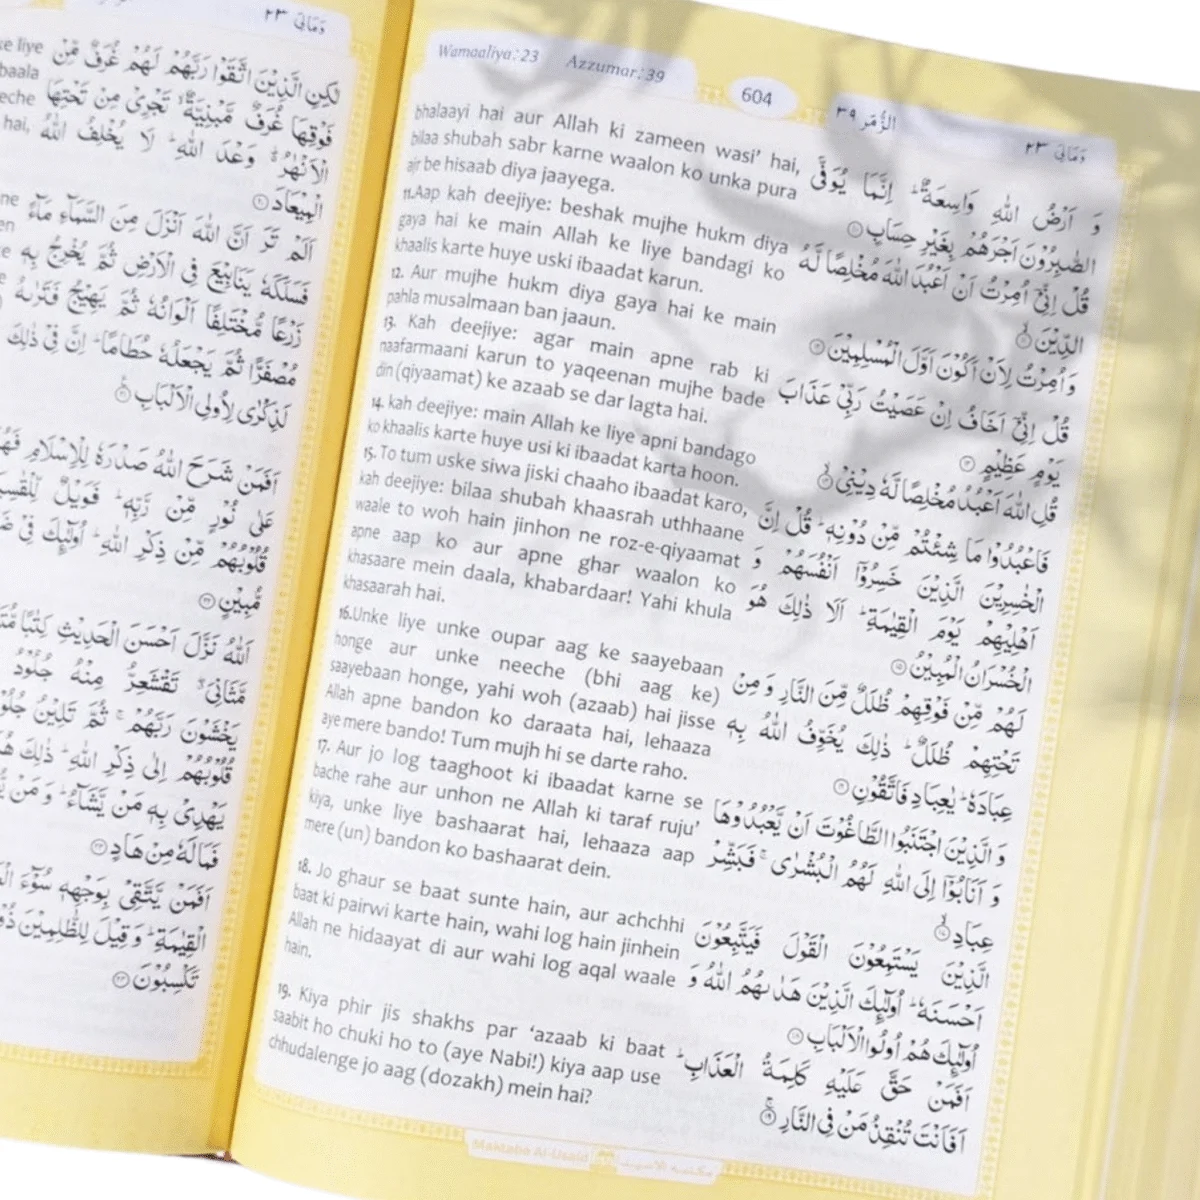 Wamaaliya: 23
Azzumar: 39
604
الزُّمَر ٣٩
وَمَالِيَ ٢٣
bhalaayi hai aur Allah ki zameen wasi' hai,
bilaa shubah sabr karne waalon ko unka pura
ajr be hisaab diya jaayega.
11.Aap kah deejiye: beshak mujhe hukm diya
gaya hai ke main Allah ke liye bandagi ko
khaalis karte huye uski ibaadat karun.
12. Aur mujhe hukm diya gaya hai ke main
pahla musalmaan ban jaaun.
13. Kah deejiye: agar main apne rab ki
naafarmaani karun to yaqeenan mujhe bade
din(qiyaamat) ke azaab se dar lagta hai.
14. kah deejiye: main Allah ke liye apni bandago
ko khaalis karte huye usi ki ibaadat karta hoon.
15. To tum uske siwa jiski chaaho ibaadat karo,
kah deejiye: bilaa shubah khaasrah uthhaane
waale to woh hain jinhon ne roz-e-qiyaamat
apne aap ko aur apne ghar waalon ko
khasaare mein daala, khabardaar! Yahi khula
khasaarah hai.
16.Unke liye unke oupar aag ke saayebaan
honge aur unke neeche (bhi aag ke)
saayebaan honge, yahi woh (azaab) hai jisse
Allah apne bandon ko daraata hai, lehaaza
aye mere bando! Tum mujh hi se darte raho.
17. Aur jo log taaghoot ki ibaadat karne se
bache rahe aur unhon ne Allah ki taraf ruju'
kiya, unke liye bashaarat hai, lehaaza aap
mere (un) bandon ko bashaarat dein.
18. Jo ghaur se baat sunte hain, aur achchhi
baat ki pairwi karte hain, wahi log hain jinhein
Allah ne hidaayat di aur wahi log aqal waale
hain.
19. Kiya phir jis shakhs par 'azaab ki baat
saabit ho chuki ho to (aye Nabi!) kiya aap use
chhudalenge jo aag (dozakh) mein hai?
وَ اَرْضُ اللّٰهِ وَاسِعَةٌ ؕ اِنَّمَا يُوَفَّى
الصّٰبِرُوْنَ اَجْرَهُمْ بِغَيْرِ حِسَابٍ ۝۱۰
قُلْ اِنِّيْۤ اُمِرْتُ اَنْ اَعْبُدَ اللّٰهَ مُخْلِصًا لَّهُ
الدِّيْنَ ۝۱۱
وَ اُمِرْتُ لِاَنْ اَكُوْنَ اَوَّلَ الْمُسْلِمِيْنَ ۝۱۲
قُلْ اِنِّيْۤ اَخَافُ اِنْ عَصَيْتُ رَبِّيْ عَذَابَ
يَوْمٍ عَظِيْمٍ ۝۱۳
قُلِ اللّٰهَ اَعْبُدُ مُخْلِصًا لَّهٗ دِيْنِيْ ۝۱۴
فَاعْبُدُوْا مَا شِئْتُمْ مِّنْ دُوْنِهٖ ؕ قُلْ اِنَّ
الْخٰسِرِيْنَ الَّذِيْنَ خَسِرُوْۤا اَنْفُسَهُمْ وَ
اَهْلِيْهِمْ يَوْمَ الْقِيٰمَةِ ؕ اَلَا ذٰلِكَ هُوَ
الْخُسْرَانُ الْمُبِيْنُ ۝۱۵
لَهُمْ مِّنْ فَوْقِهِمْ ظُلَلٌ مِّنَ النَّارِ وَ مِنْ
تَحْتِهِمْ ظُلَلٌ ؕ ذٰلِكَ يُخَوِّفُ اللّٰهُ بِهٖ
عِبَادَهٗ ؕ يٰعِبَادِ فَاتَّقُوْنِ ۝۱۶
وَ الَّذِيْنَ اجْتَنَبُوا الطَّاغُوْتَ اَنْ يَّعْبُدُوْهَا
وَ اَنَابُوْۤا اِلَى اللّٰهِ لَهُمُ الْبُشْرٰى ۚ فَبَشِّرْ
عِبَادِ ۝۱۷
الَّذِيْنَ يَسْتَمِعُوْنَ الْقَوْلَ فَيَتَّبِعُوْنَ
اَحْسَنَهٗ ؕ اُولٰٓئِكَ الَّذِيْنَ هَدٰىهُمُ اللّٰهُ وَ
اُولٰٓئِكَ هُمْ اُولُوا الْاَلْبَابِ ۝۱۸
اَفَمَنْ حَقَّ عَلَيْهِ كَلِمَةُ الْعَذَابِ ؕ
اَفَاَنْتَ تُنْقِذُ مَنْ فِي النَّارِ ۝۱۹
Maktaba Al-Usaid
وَمَالِيَ ٢٣
ke liye
baala
eche
hai,
لٰكِنِ الَّذِيْنَ اتَّقَوْا رَبَّهُمْ لَهُمْ غُرَفٌ مِّنْ
فَوْقِهَا غُرَفٌ مَّبْنِيَّةٌ ۙ تَجْرِيْ مِنْ تَحْتِهَا
الْاَنْهٰرُ ؕ وَعْدَ اللّٰهِ ؕ لَا يُخْلِفُ اللّٰهُ
الْمِيْعَادَ ۝۲۰
اَلَمْ تَرَ اَنَّ اللّٰهَ اَنْزَلَ مِنَ السَّمَآءِ مَآءً
فَسَلَكَهٗ يَنَابِيْعَ فِي الْاَرْضِ ثُمَّ يُخْرِجُ بِهٖ
زَرْعًا مُّخْتَلِفًا اَلْوَانُهٗ ثُمَّ يَهِيْجُ فَتَرٰىهُ
مُصْفَرًّا ثُمَّ يَجْعَلُهٗ حُطَامًا ؕ اِنَّ فِيْ ذٰلِكَ
لَذِكْرٰى لِاُولِي الْاَلْبَابِ ۝۲۱
اَفَمَنْ شَرَحَ اللّٰهُ صَدْرَهٗ لِلْاِسْلَامِ
عَلٰى نُوْرٍ مِّنْ رَّبِّهٖ ؕ فَوَيْلٌ
قُلُوْبُهُمْ مِّنْ ذِكْرِ اللّٰهِ ؕ اُولٰٓئِكَ فِيْ
مُّبِيْنٍ ۝۲۲
اَللّٰهُ نَزَّلَ اَحْسَنَ الْحَدِيْثِ كِتٰبًا
مَّثَانِيَ ۖ تَقْشَعِرُّ مِنْهُ جُلُوْدُ
يَخْشَوْنَ رَبَّهُمْ ۚ ثُمَّ تَلِيْنُ
قُلُوْبُهُمْ اِلٰى ذِكْرِ اللّٰهِ ؕ ذٰلِكَ
يَهْدِيْ بِهٖ مَنْ يَّشَآءُ ؕ وَ مَنْ
فَمَا لَهٗ مِنْ هَادٍ ۝۲۳
اَفَمَنْ يَّتَّقِيْ بِوَجْهِهٖ سُوْٓءَ
الْقِيٰمَةِ ؕ وَ قِيْلَ لِلظّٰلِمِيْنَ
تَكْسِبُوْنَ ۝۲۴